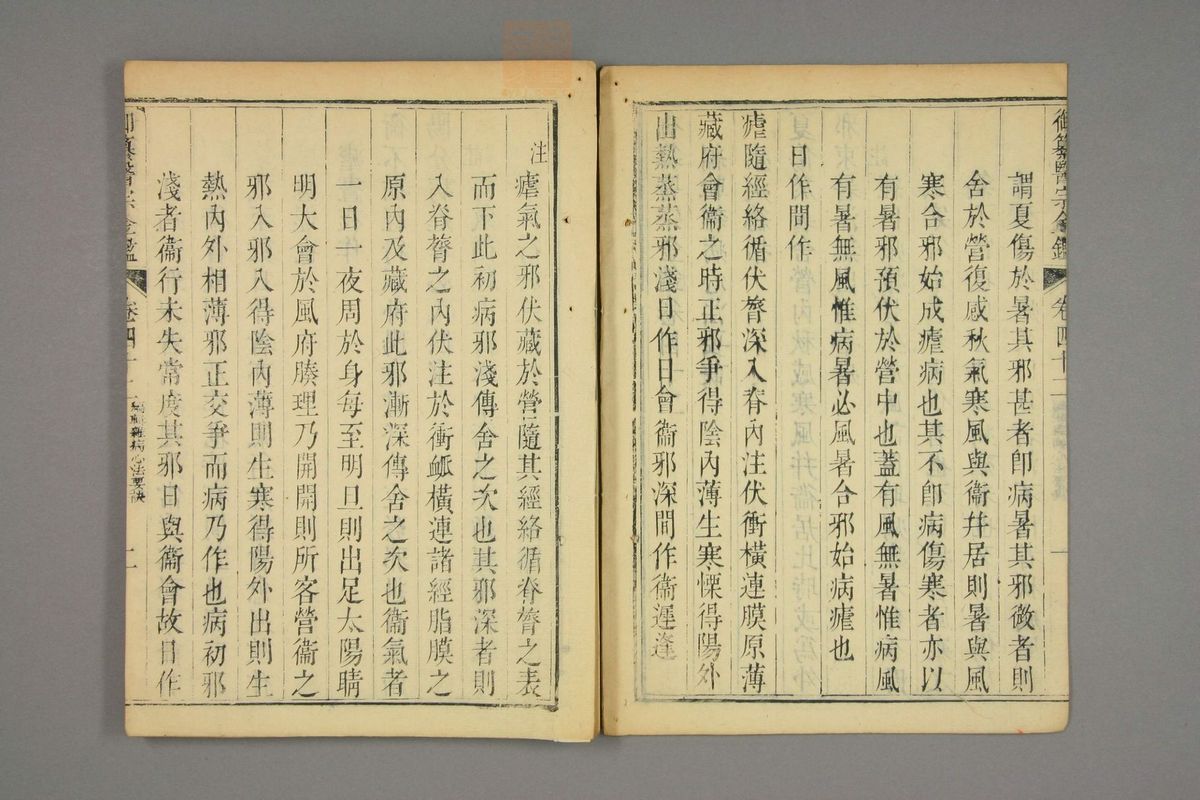 御纂醫宗金鑑 卷四十二 一
謂夏傷於暑其邪甚者卽病暑其邪微者則
舍於營復感秋氣寒風與衞幷居則暑與風
寒合邪始成瘧病也其不卽病傷寒者亦以
有暑邪預伏於營中也蓋有風無暑惟病風
有暑無風惟病暑必風暑合邪始病瘧也
日作間作
瘧隨經絡循伏膂深入脊內注伏衝橫連膜原薄
藏府會衞之時正邪爭得陰內薄生寒慄得陽外
出熱蒸蒸邪淺日作日會衞邪深間作衞遲逢
注
瘧氣之邪伏藏於營隨其經絡循脊膂之表
而下此初病邪淺傳舍之次也其邪深者則
入脊膂之內伏注於衝䘑橫連諸經脂膜之
原內及藏府此邪漸深傳舍之次也衞氣者
一日一夜周於身每至明旦則出足太陽睛
明大會於風府腠理乃開開則所客營衞之
邪入邪入得陰內薄則生寒得陽外出則生
熱內外相薄邪正交爭而病乃作也病初邪
淺者衞行未失常度其邪日與衞會故日作
御纂醫宗金鑑 卷四十二 編輯雜病心法要訣 二